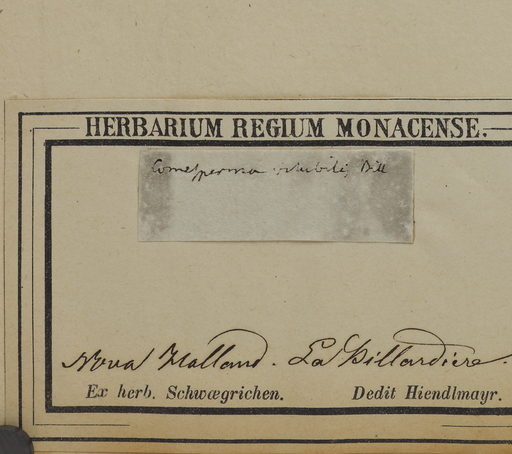 HERBARIUM REGIUM MONACENSE.
Comesperma volubilis Bill
Nova Holland. La Billardiere.
Ex herb. Schwægrichen. Dedit Hiendlmayr.